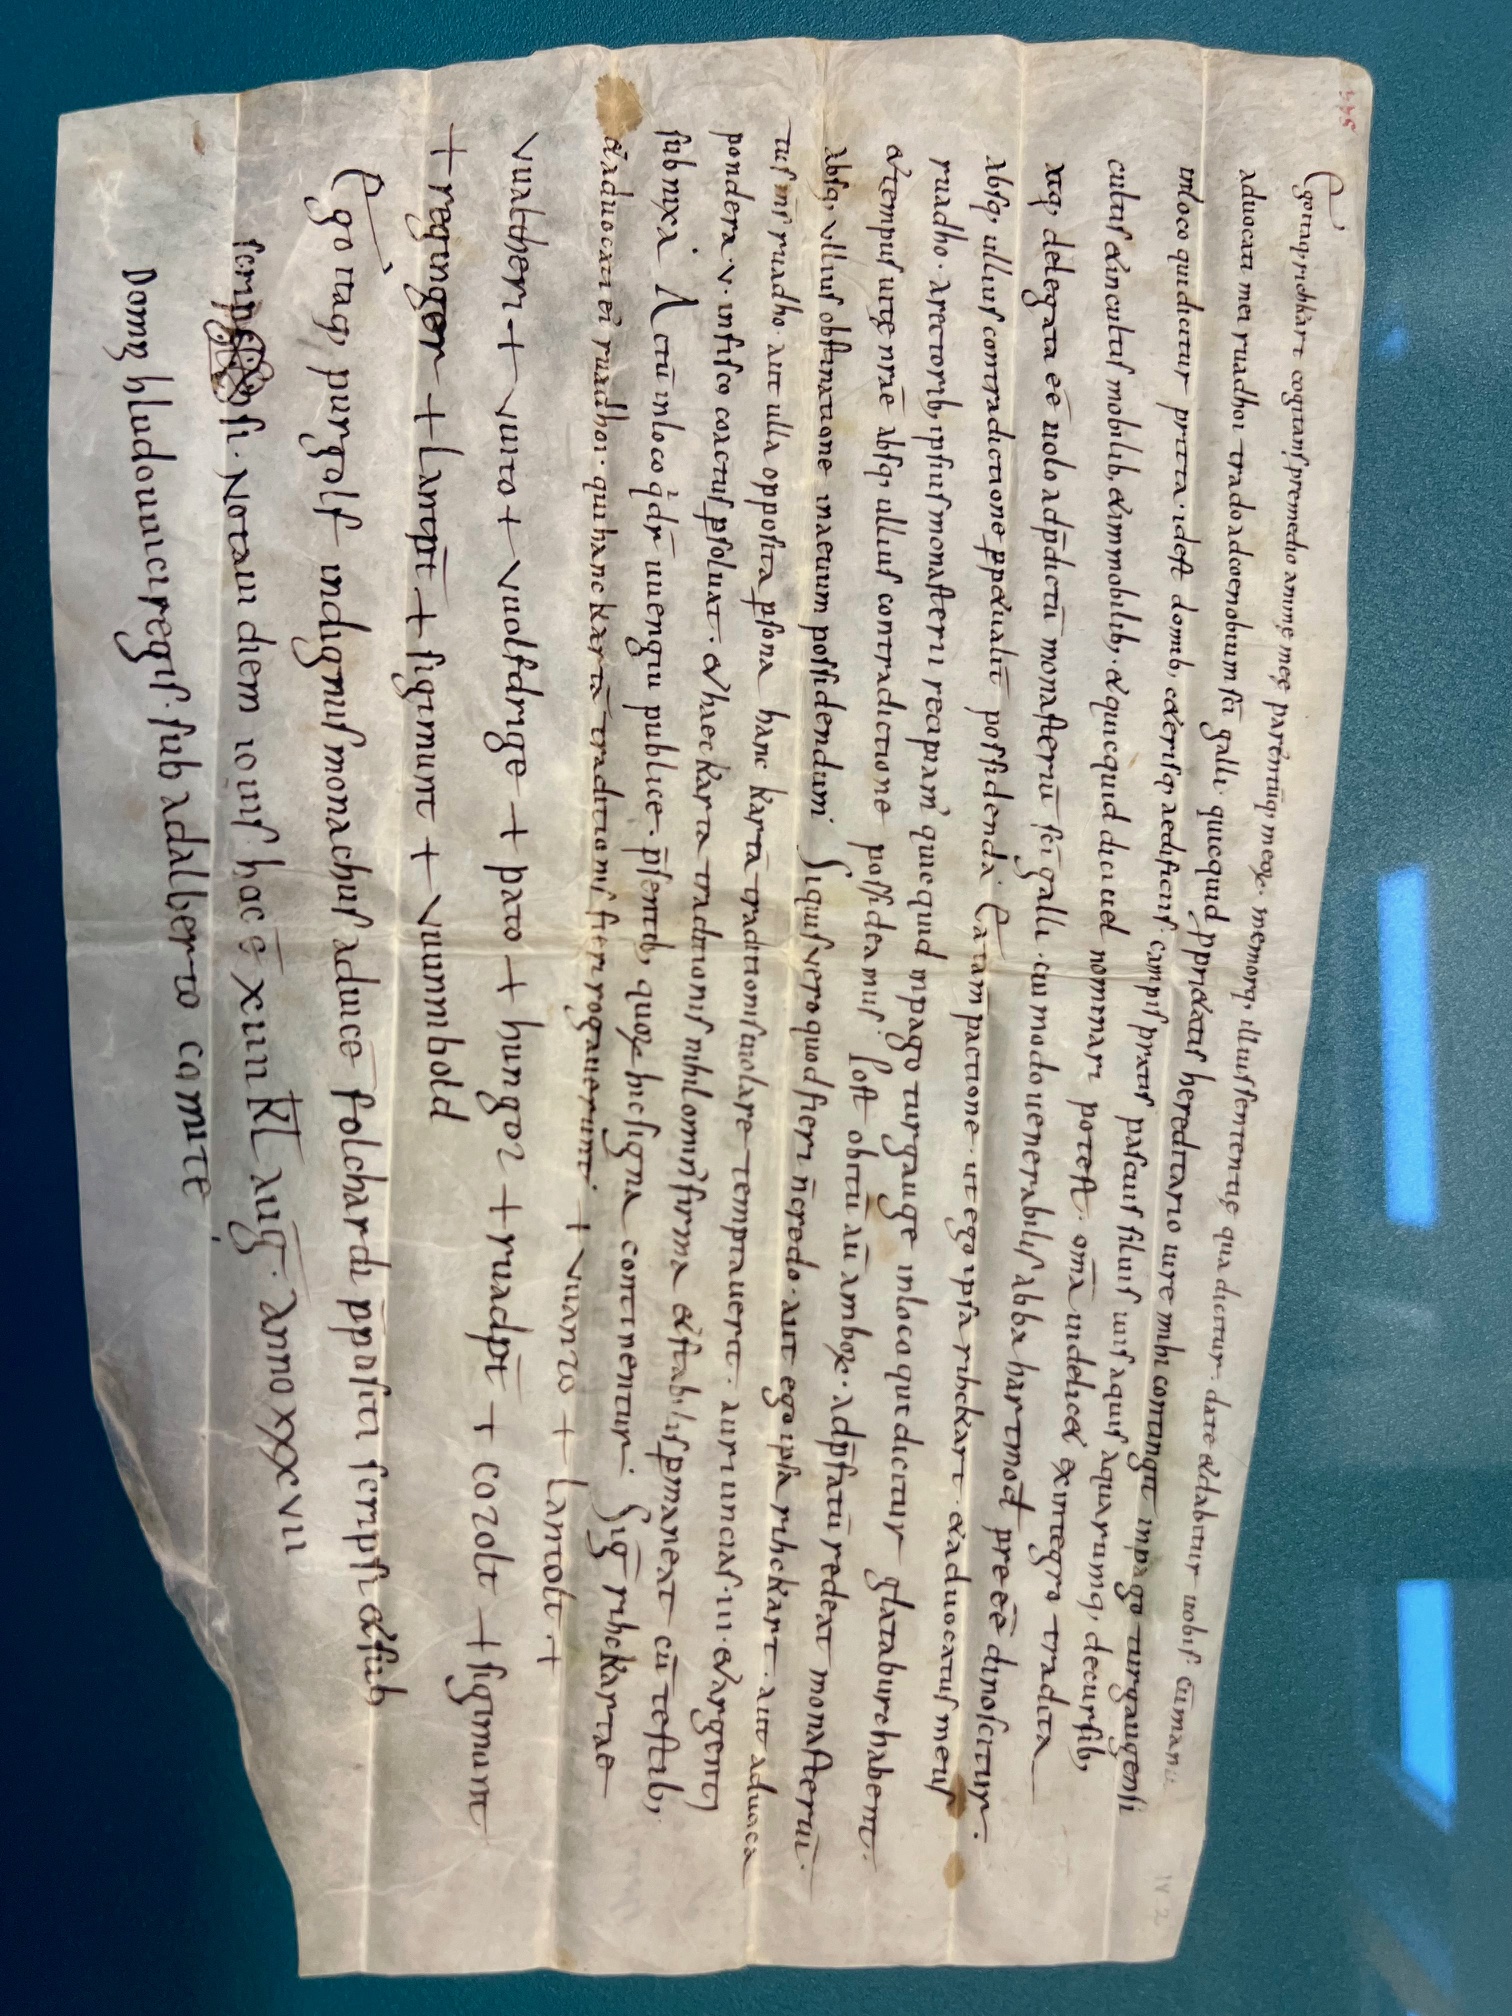 544
Ego itaq; rihkart cogitans premedio animę meę parentūq; meoꝝ. memorq; illius sententię qua dicitur. date & dabitur uobis cū manu
aduocati mei ruadhoi trado ad coenobium sc̄i galli. quicquid ꝓpriętatis hereditario iure mihi contingit in pago turgaugensi
in loco qui dicitur pritta. id est domib; ceterisq; aedificiis. campis pratis pascuis siluis uiis aquis aquarumq; decursib;
cultis & incultis mobilib; & immobilib;. & quicquid dici uel nominari potest. om̄a uidelic& ex integro tradita
atq; delegata eē uolo ad p̄dictū monasteriū sc̄i galli. cui modo uenerabilis abba hartmot preeē dinoscitur.
absq; ullius contradictione ꝑp&ualit̄ possidenda. Ea tam pactione. ut ego ipsa rihckart. & aduocatus meus
ruadho. a rectorib; ipsius monasterii recipiam quicquid in pago turgauge in loco qui dicitur glataburc habent.
& tempus uitę nrae absq; ullius contradictione possideamus. Post obitū aū amboꝝ. ad p̄fatū redeat monasteriū.
absq; ullius obstinatione in aeuum possidendum. Si quis vero quod fieri n̄ credo. aut ego ipsa rihckart. aut aduoca
tus m̄s ruadho. aut ulla opposita ꝑsona hanc kartā traditionis uiolare temptauerit. auri uncias .iii. & argenti
pondera .v. in fisco coactus ꝑsoluat. & haec karta traditionis nihilominus firma & stabilis ꝑmaneat cū testib;
subnixa. Actū in loco q̇dr̄ uuengiu publice. p̄sentib; quoꝝ hic signa continentur. Sig̅ rihckartae
& aduocati ei ruadhoi. qui hanc kartā traditionis fieri rogauerunt. + vuanzo + lantolt. +
vualtheri + vuito + vuolfdrige + pato + hunger + ruadpt̄ + cozolt + sigimunt
+ reginger + lantpt̄ + sigimunt + vuinibold
Ego itaq; purgolf indignus monachus ad uicē folchardi p̄positi scripsi & sub
scripsi. Notaui diem iouis hoc ē xiiii kl̄ aug̅. anno xxxvii
Domni hludouuici regis. sub adalberto comite